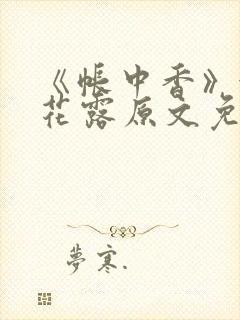 《帐中香》
花露原文免
夢寒.